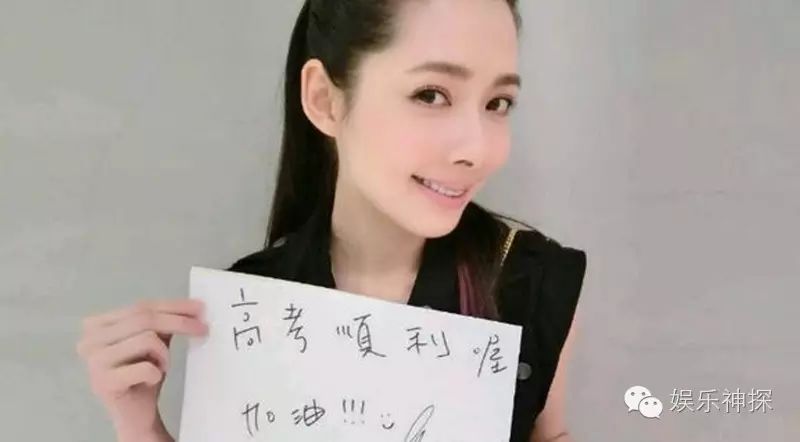 高考順利喔
加油!!!
娱乐神探